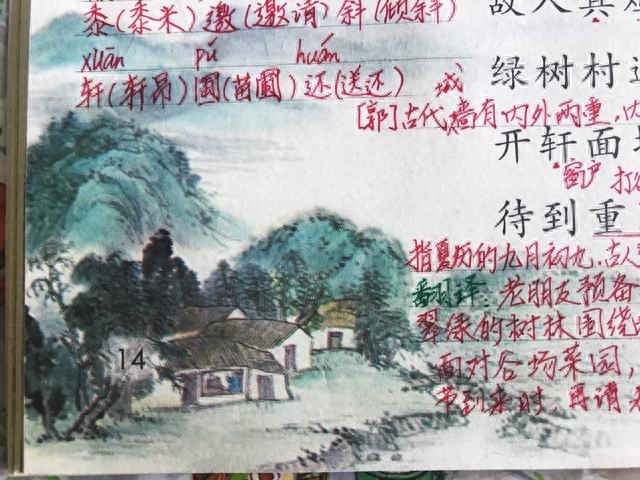 黍(黍米) 邀(邀请) 斜(倾斜)
故人具
xuān pǔ huán
轩(轩昂) 圃(苗圃) 还(送还)
绿树村
城
[郭]古代墙有内外两重,内
开轩面
窗户 打
待到重
指夏历的九月初九.古人
翻译:老朋友预备
翠绿的树林围绕
面对谷场菜园,
节到来时,再请
14